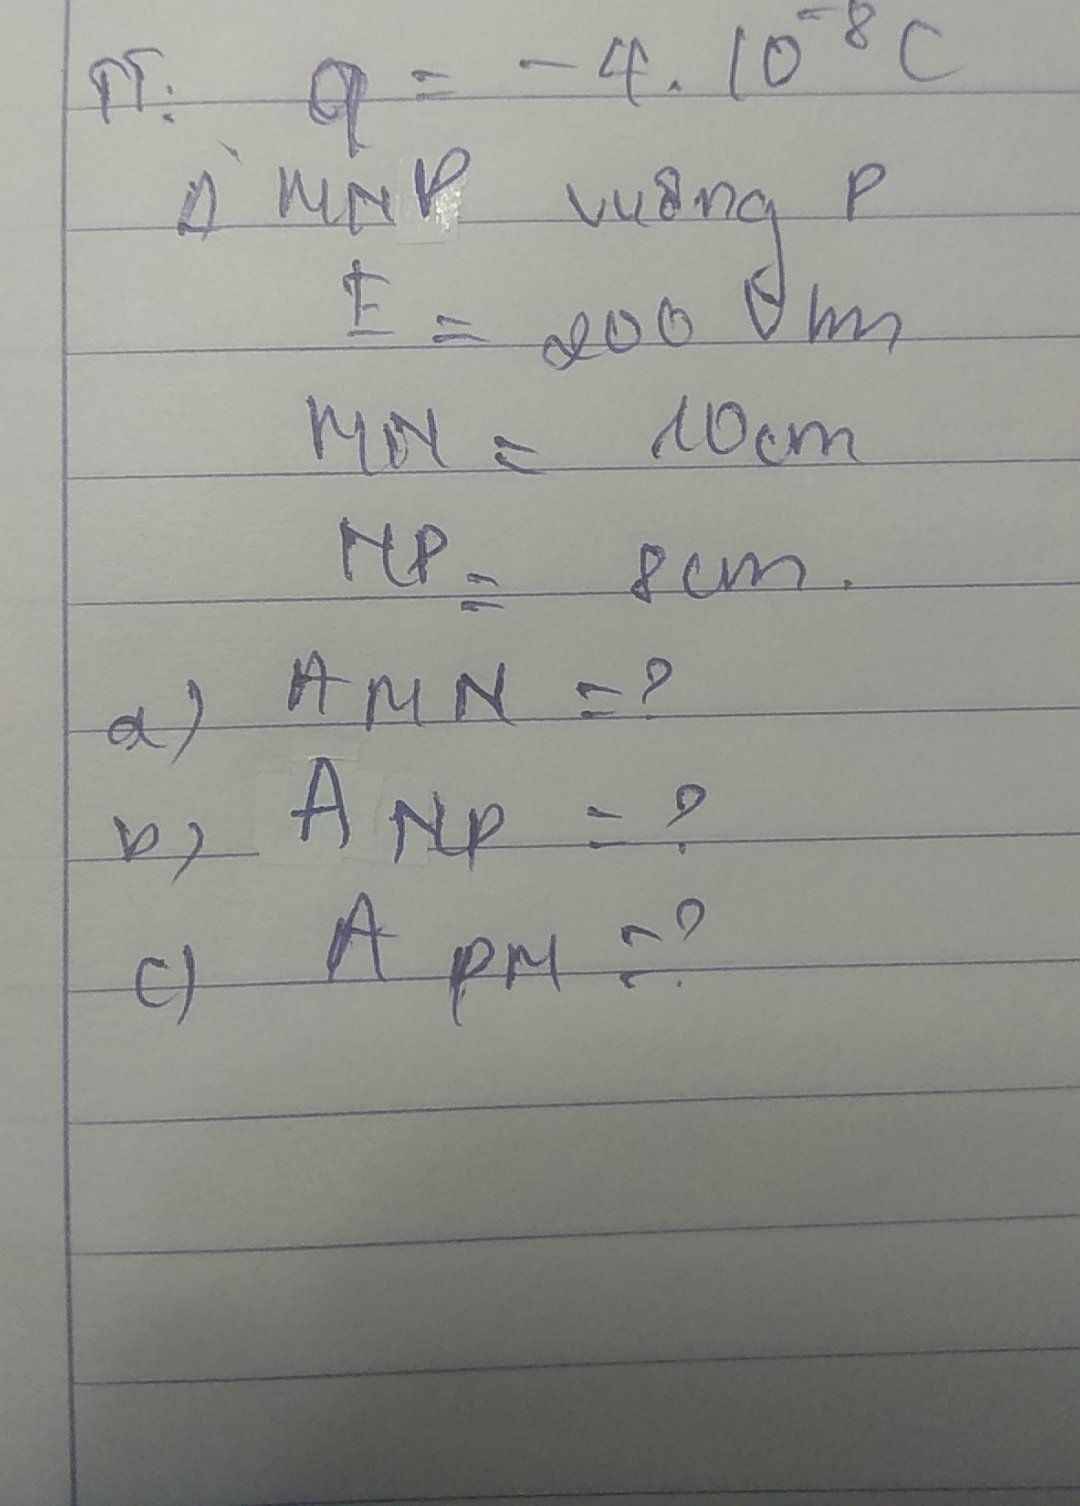 TT: q = -4. 10⁻⁸ C
Δ MNP vuông P
E = 200 V/m
MN = 10cm
NP = 8cm.
a) AMN = ?
b) ANP = ?
c) APM = ?